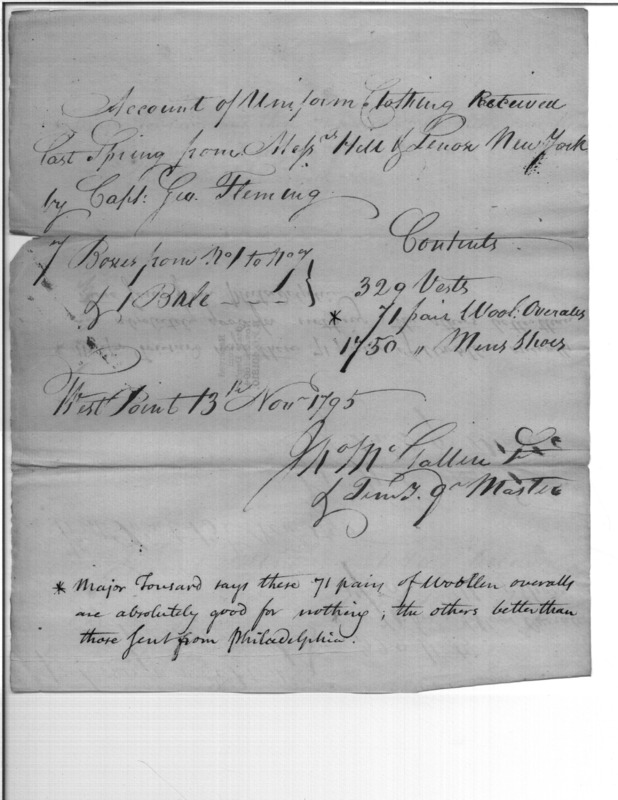 Account of Uniform Clothing Received
last Spring from Messrs Hill & Lenox New York
by Capt: Geo. Fleming
Contents
7 Boxes from No 1 to No 7
& 1 Bale 1
329 Vests
* 71 pair Wool: Overalls
1750 " Mens Shoes
West Point 13th Novr 1795
Mc
& Qr Master
* Major Tousard says these 71 pairs of Woollen overalls
are absolutely good for nothing; the others better than
those sent from Philadelphia.